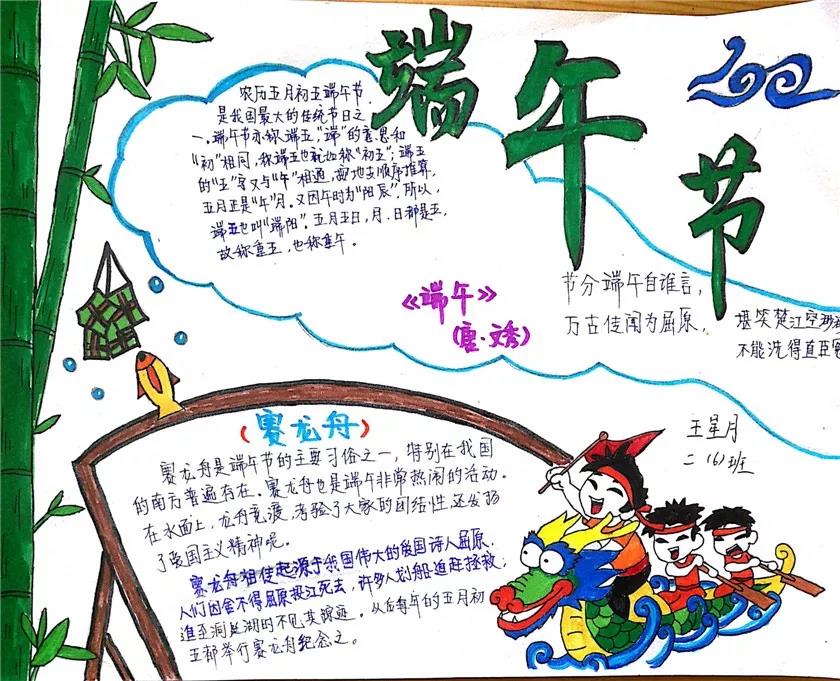 端午节
农历五月初五端午节,
是我国最大的传统节日之
一。端午节亦称端五,"端"的意思和
"初"相同,称端五也就如称"初五";端五
的"五"字又与"午"相通,按地支顺序推算,
五月正是"午"月。又因午时为"阳辰",所以,
端五也叫"端阳"。五月五日,月、日都是五,
故称重五,也称重午。
《端午》
(唐·文秀)
节分端午自谁言,
万古传闻为屈原,
堪笑楚江空渺
不能洗得直臣
(赛龙舟)
赛龙舟是端午节的主要习俗之一,特别在我国
的南方普遍存在。赛龙舟也是端午非常热闹的活动。
在水面上,龙舟竞渡,考验了大家的团结性,还发扬
了爱国主义精神呢。
赛龙舟相传起源于我国伟大的爱国诗人屈原,
人们因舍不得屈原投江死去,许多人划船追赶拯救,
追至洞庭湖时不见其踪迹。从后每年的五月初
五都举行赛龙舟纪念之。
王星月
二(6)班